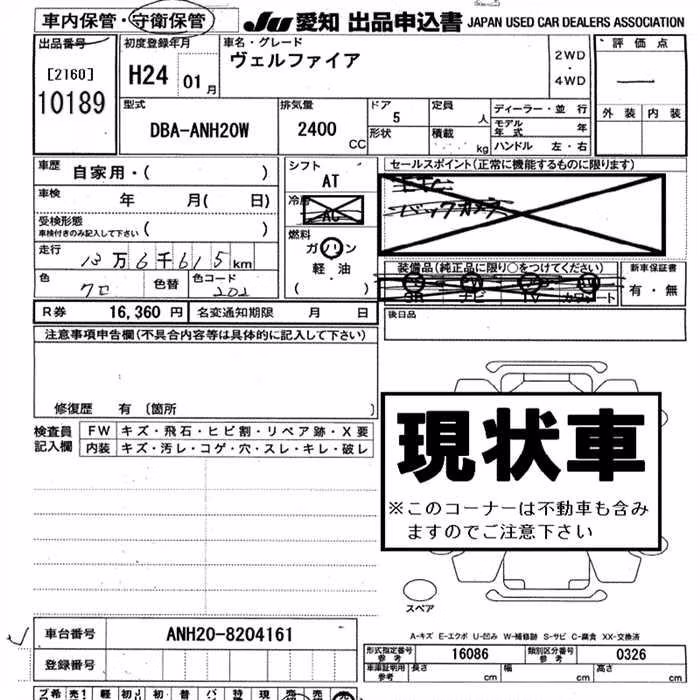 車内保管・守衛保管
JU 愛知 出品申込書 JAPAN USED CAR DEALERS ASSOCIATION
出品番号 初度登録年月 車名・グレード 評価点
[2160] H24 01月 ヴェルファイア 2WD・4WD
10189
外装 内装
型式 排気量 ドア 定員 ディーラー・並行
DBA-ANH20W 2400 CC 5 人 モデル年式 年
形状 積載 kg ハンドル 左・右
車歴 自家用・( ) シフト セールスポイント(正常に機能するものに限ります)
AT
車検 年 月( 日) 冷房 ETC
AC バックカメラ
受検形態
車検付きのみ記入して下さい ( ) 燃料
ガソリン
走行 13万6千615km 軽・油
( )
装備品(純正品に限り○をつけてください) 新車保証書
SR ナビ TV カワシート 有・無
色 クロ 色替 色コード 202
R券 16,360円 名変通知期限 月 日 後日品
注意事項申告欄(不具合内容等は具体的に記入して下さい)
修復歴 有 〔箇所 〕
検査員記入欄 FW キズ・飛石・ヒビ割・リペア跡・X要
内装 キズ・汚レ・コゲ・穴・スレ・キレ・破レ
現状車
※このコーナーは不動車も含み
ますのでご注意下さい
スペア
車台番号 ANH20-8204161
A-キズ E-エクボ U-凹み W-補修跡 S-サビ C-腐食 XX-交換済
登録番号
型式指定番号 参考 16086 類別区分番号 参考 0326
車庫証明用 参考 長さ cm 幅 cm 高さ cm